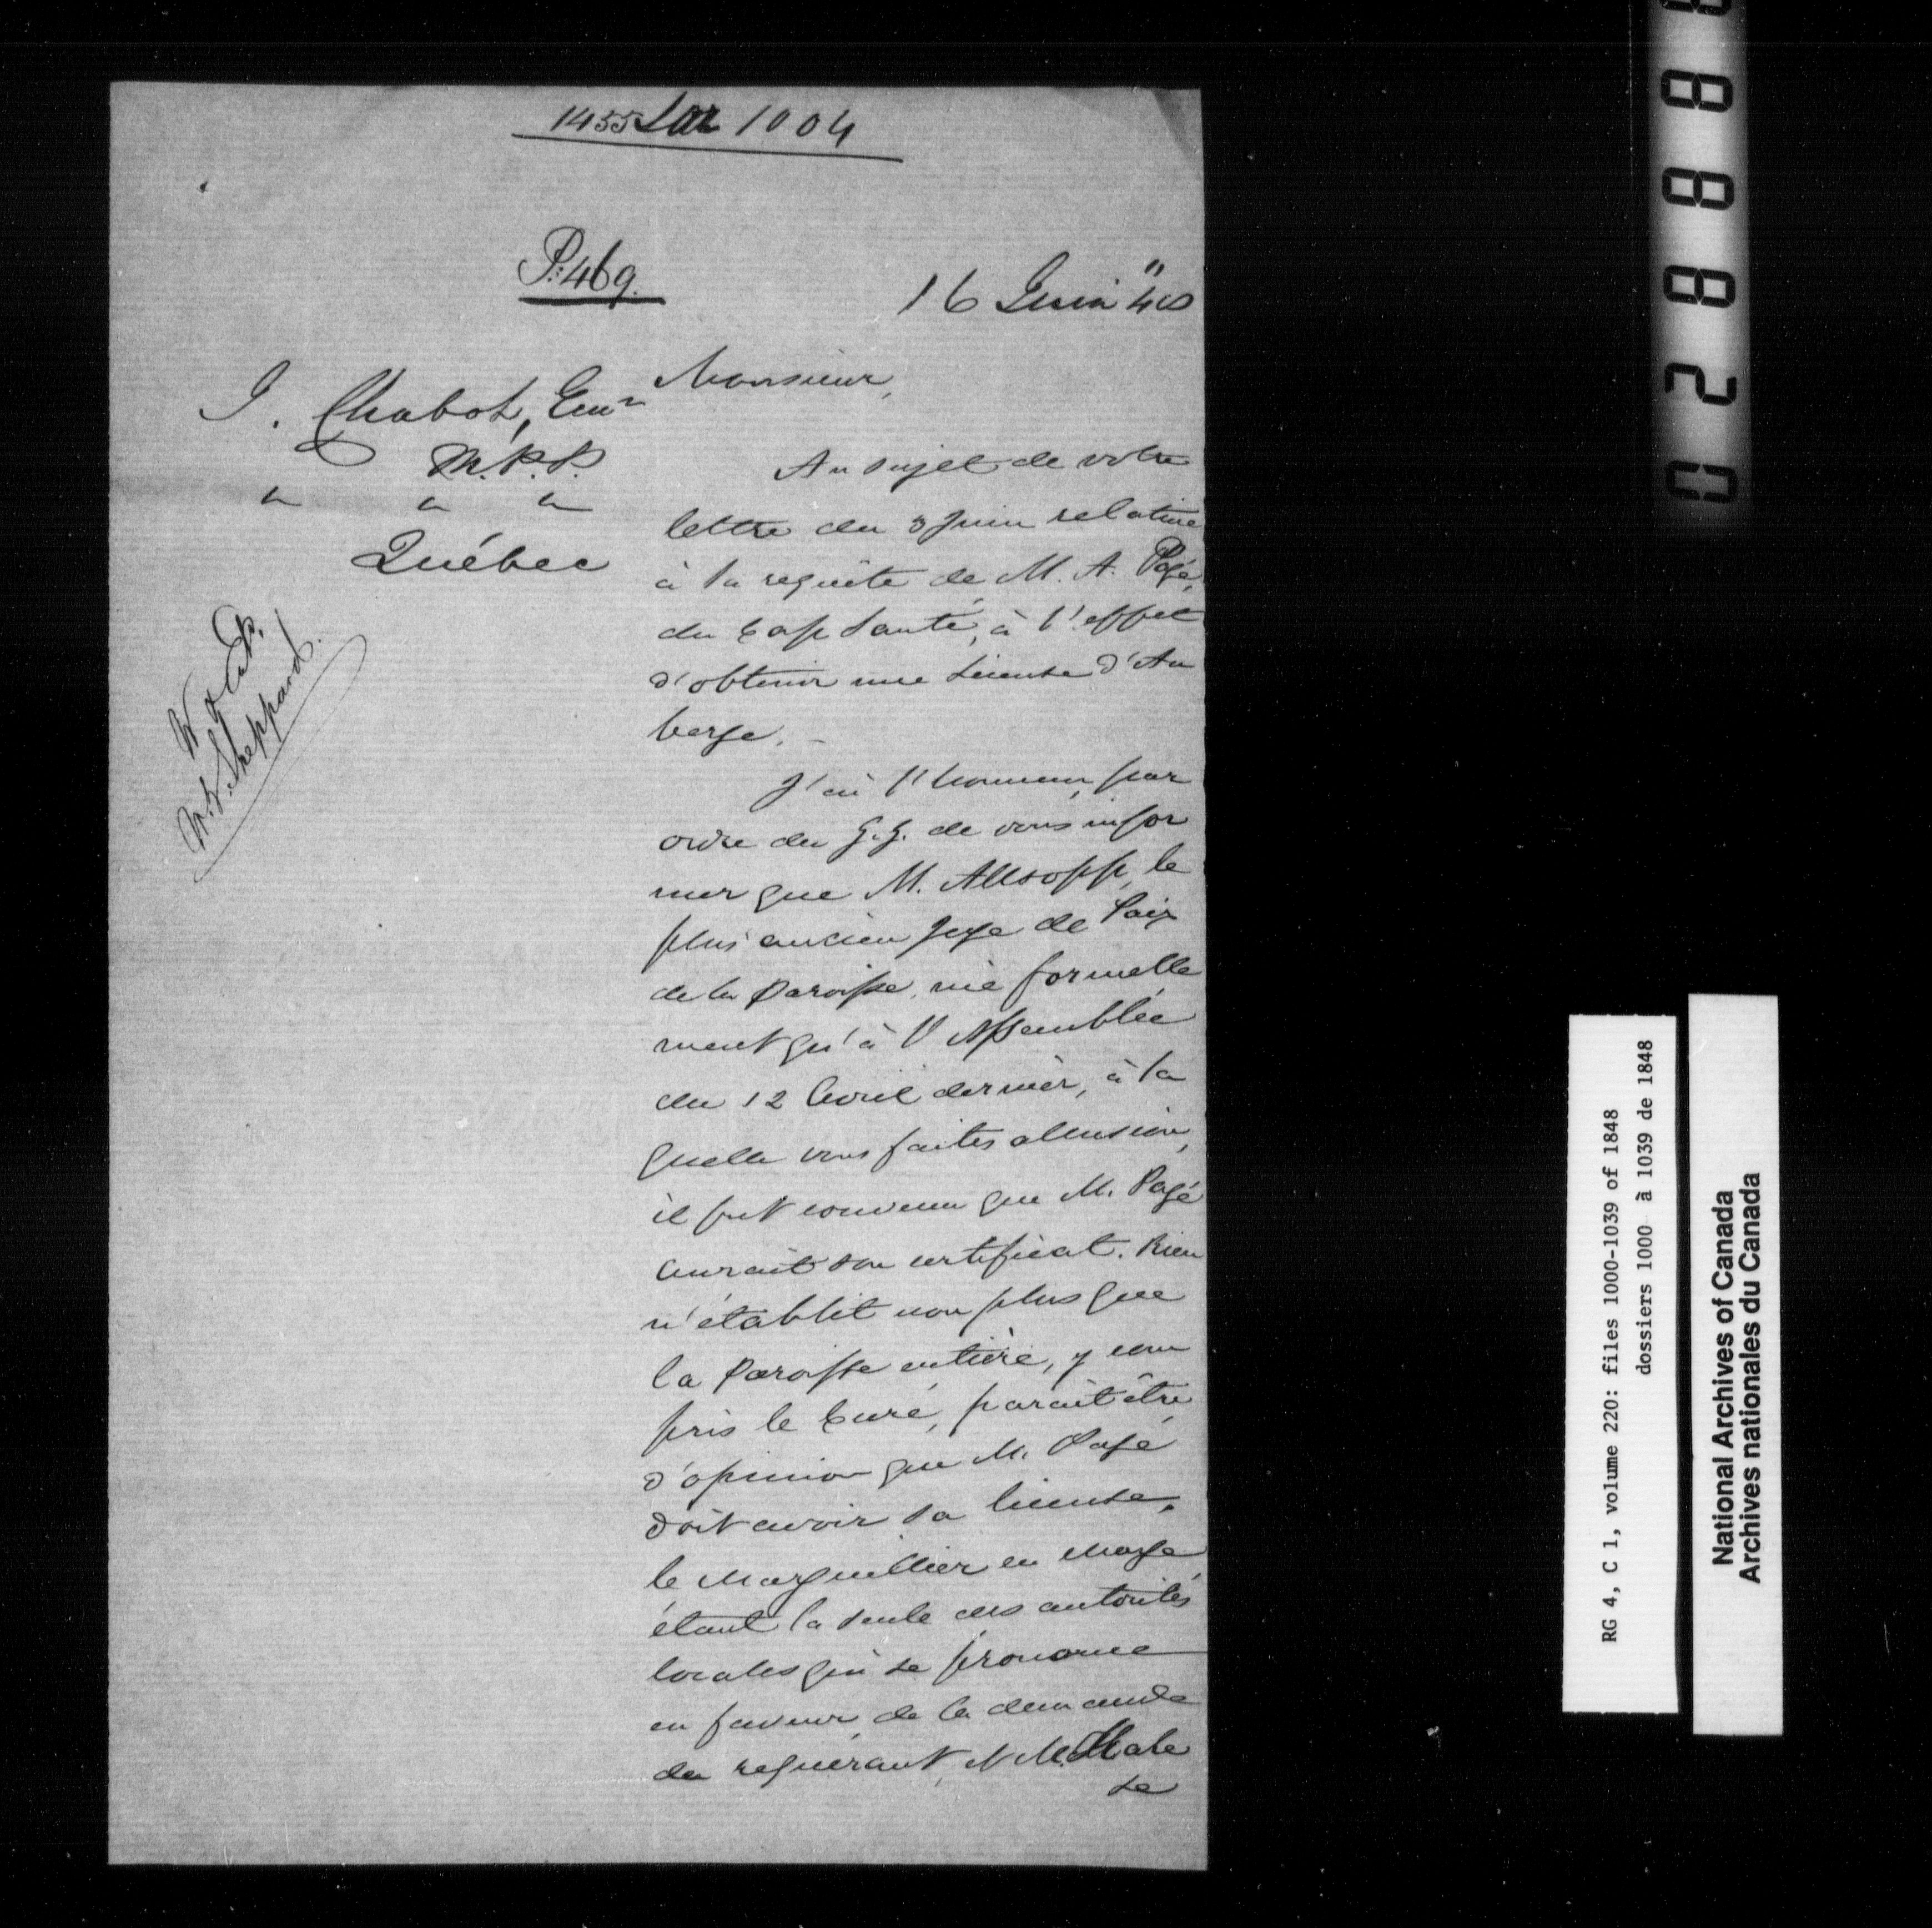 1455 Sur 1004
P. 469.
16 Juin "48
J. Chabot, Ecur
M.P.P.
" " "
Québec
W. G. Sheppard.
Monsieur,
Au sujet de votre
lettre du 3 Juin relative
à la requête de M. A. Pagé,
du Cap Santé, à l'effet
d'obtenir une Licence d'Au
berge. –
J'ai l'honneur, par
ordre du G. G. de vous infor
mer que M. Allsopp, le
plus ancien Juge de Paix
de la Paroisse, nie formelle
ment qu'à l'Assemblée
du 12 Avril dernier, à la
quelle vous faites allusion,
il fut convenu que M. Pagé
aurait son certificat. Rien
n'établit non plus que
la Paroisse entière, y com
pris le Curé, paraît être
d'opinion que M. Pagé
doit avoir sa licence,
le Marguillier en charge
étant la seule des autorités
locales qui se prononce
en faveur de la demande
du requérant, M. Hale
se
0288888
RG 4, C 1, volume 220: files 1000-1039 of 1848
dossiers 1000 à 1039 de 1848
National Archives of Canada
Archives nationales du Canada